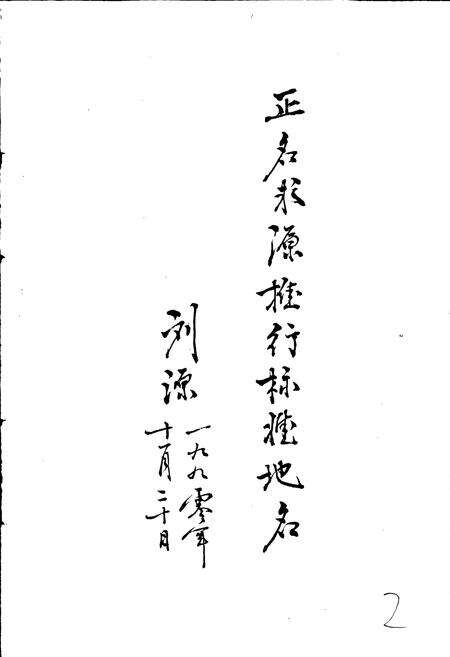 正名求源推行标准地名
刘源
一九九零年
十一月二十日
2